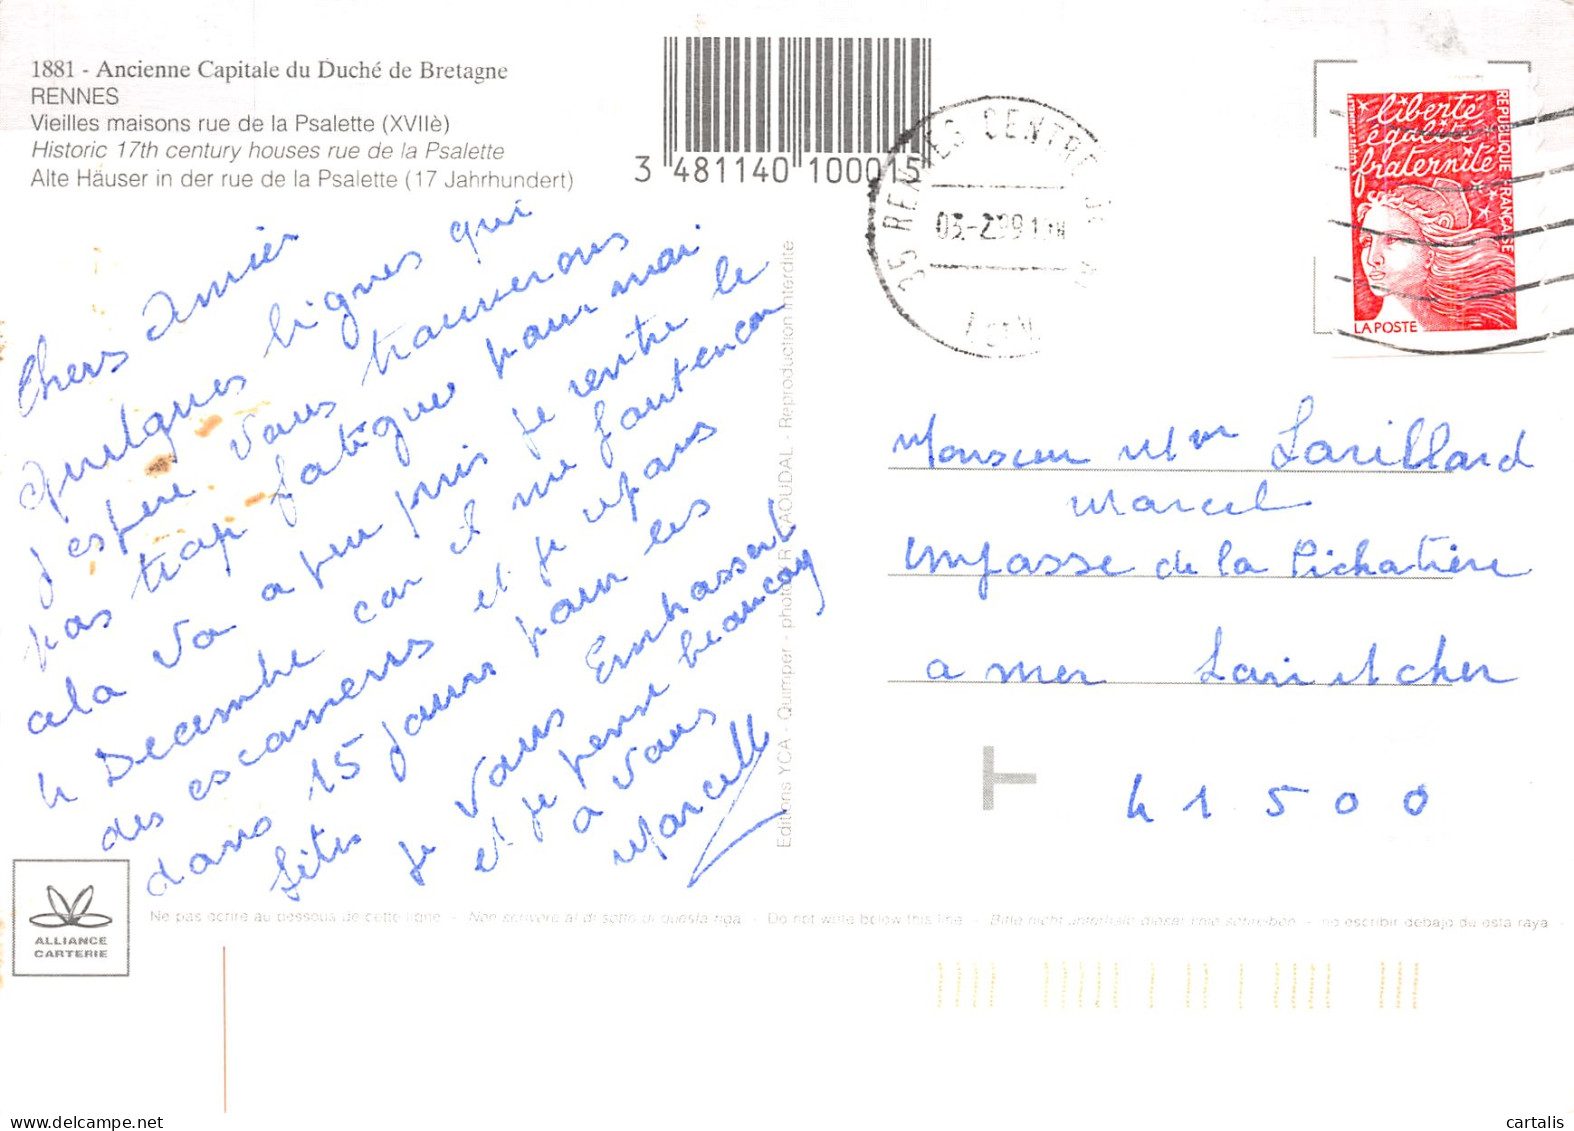 1881 - Ancienne Capitale du Duché de Bretagne
RENNES
Vieilles maisons rue de la Psalette (XVIIè)
Historic 17th century houses rue de la Psalette
Alte Häuser in der rue de la Psalette (17 Jahrhundert)
3 481140 100015
35 RENNES CENTRE
03-2
liberté
égalité
fraternité
REPUBLIQUE FRANÇAISE
LA POSTE
Chers Amies
quelques lignes qui
j'espere vous trouverons
pas trop fatiguer pour moi
cela va a peu pris je rentre le
4 Decembre car il me faut encor
des escamens et je repars
dans 15 jours pour les
fêtes
je vous Embrassent
et je pense beaucoup
a vous
Marcelle
Editions YCA - Quimper - photo R LAOUDAL - Reproduction interdite
Monsieur Mm Larillard
Marcel
impasse de la Pichatière
a mer Loir et cher
41500
T
ALLIANCE
CARTERIE
Ne pas écrire au dessous de cette ligne - Non scrivere al di sotto di questa riga - Do not write below this line - Bitte nicht unterhalb dieser linie schreiben - no escribir debajo de esta raya -
cartalis